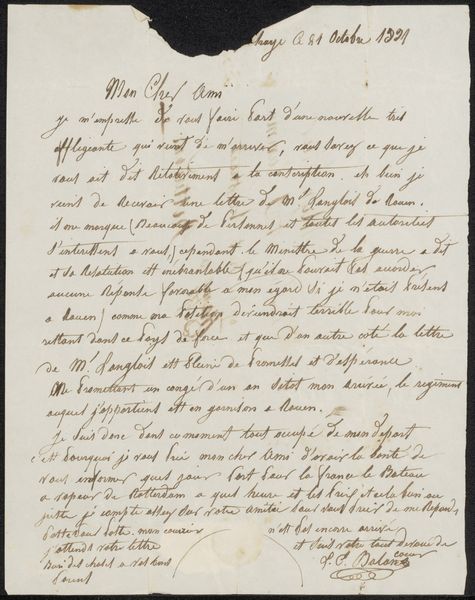 haye ce 21 Octobre 1821
Mon Cher Ami
je m'empresse de vous faire Part d'une nouvelle tres
affligeante qui vient de m'arriver, vous savez ce que je
vous ait dit Relativement a la conscription. eh bien je
viens de Recevoir une lettre de Mr Langlois de Rouen.
il me marque (Beaucoup de Personnes et toutes les autorités
s'interessent a vous) cependant le Ministre de la guerre a dit
et sa Resolution est inebranlable (qu'il ne Pouvait Pas accorder
aucune Réponse favorable a mon egard Si je n'etait Present
a Rouen) comme ma Position deviendrait terrible Pour moi
restant dans ce Pays de force et que d'un autre coté la lettre
de Mr Langlois est Pleine de Promesses et d'esperance
Me Promettant un congé d'un an Sitot mon arrivée, le regiment
auquel j'appartiens est en garnison a Rouen.
Je suis donc dans ce moment tout occupé de mon départ
c'est Pourquoi je vous Prie mon cher Ami d'avoir la bonté de
vous informer quel jour Part Pour la france le Bateau
a vapeur de Rotterdam a quel heure et les Prix
juste je compte assez Sur votre amitié Pour vous Prier de me Repondre
Poste Pour Poste. mon courier n'est Pas encore arrivé
j'attends votre lettre et suis votre tout devoué de
Bien des choses a vos bons coeur
Parents